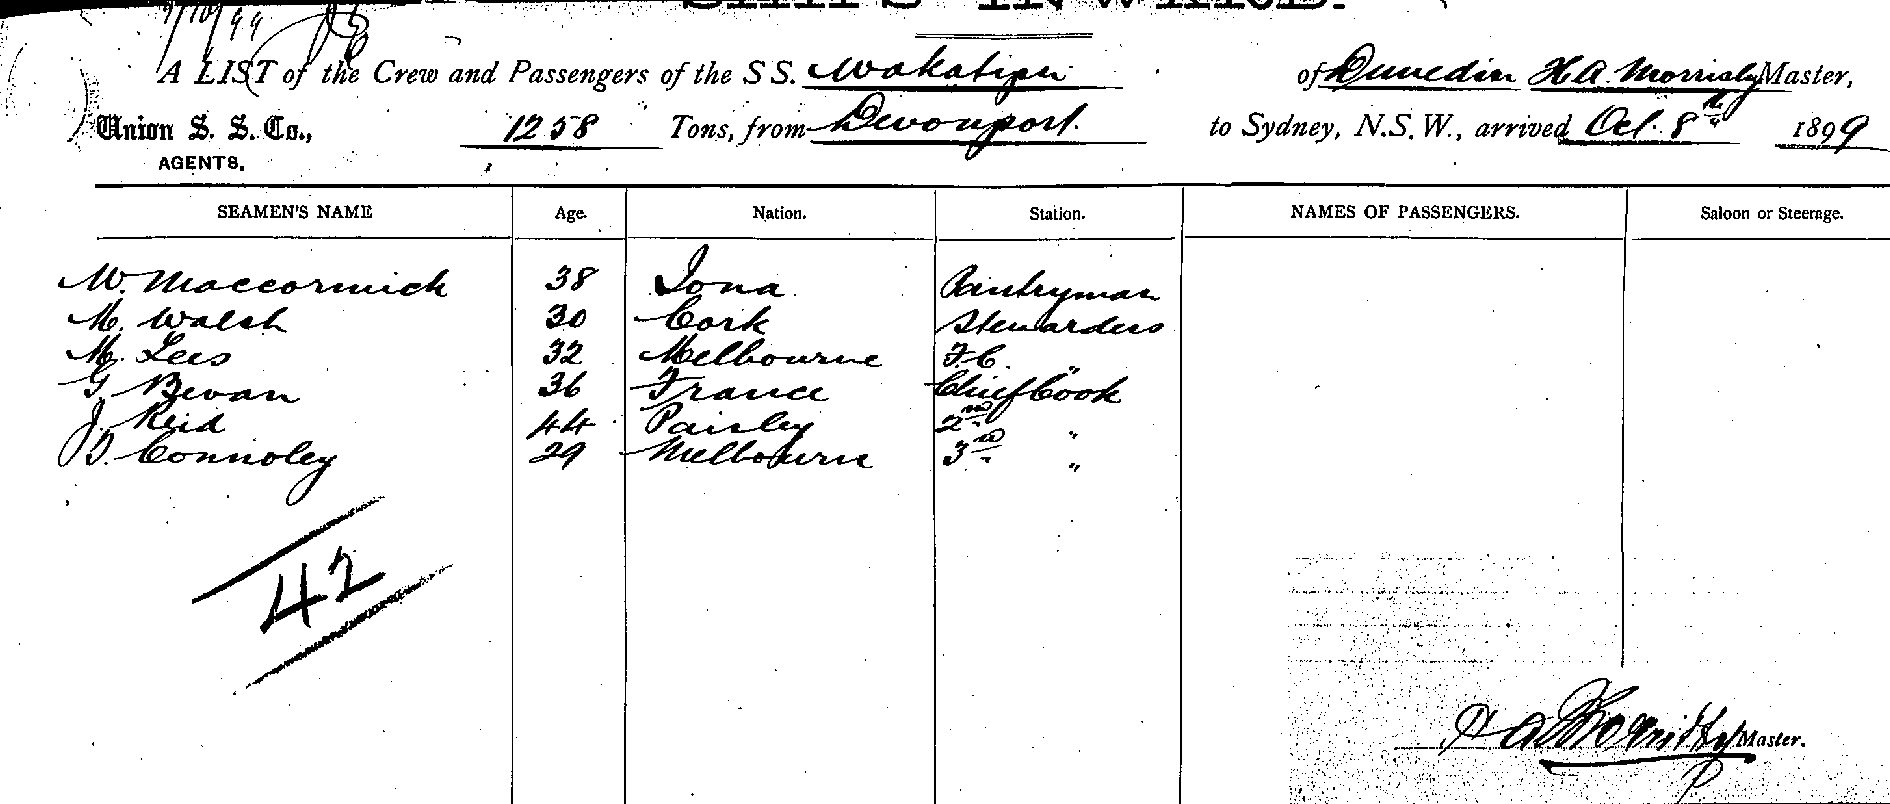 SHIPS INWARD.
9/10/99
A LIST of the Crew and Passengers of the S S. Wakatipu of Dunedin H A Morrisby Master,
Union S. S. Co., AGENTS. 1258 Tons, from Devonport. to Sydney, N.S.W., arrived Oct. 8th 1899
SEAMEN'S NAME Age. Nation. Station. NAMES OF PASSENGERS. Saloon or Steerage.
W. MacCormick 38 Iona Pantryman
M. Walsh 30 Cork Stewardess
M. Lees 32 Melbourne F.C. "
G. Bevan 36 France Chief Cook
J. Reid 44 Paisley 2nd "
D. Connoley 29 Melbourne 3rd "
42
H A Morrisby Master.